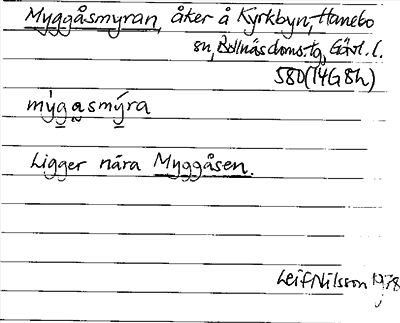 Myggåsmyran, åker å Kyrkbyn, Hanebo
sn, Bollnäs doms.tg, Gävl. l.
580 (14G 8h)
mỳgasmýra
Ligger nära Myggåsen.
Leif Nilsson 1978